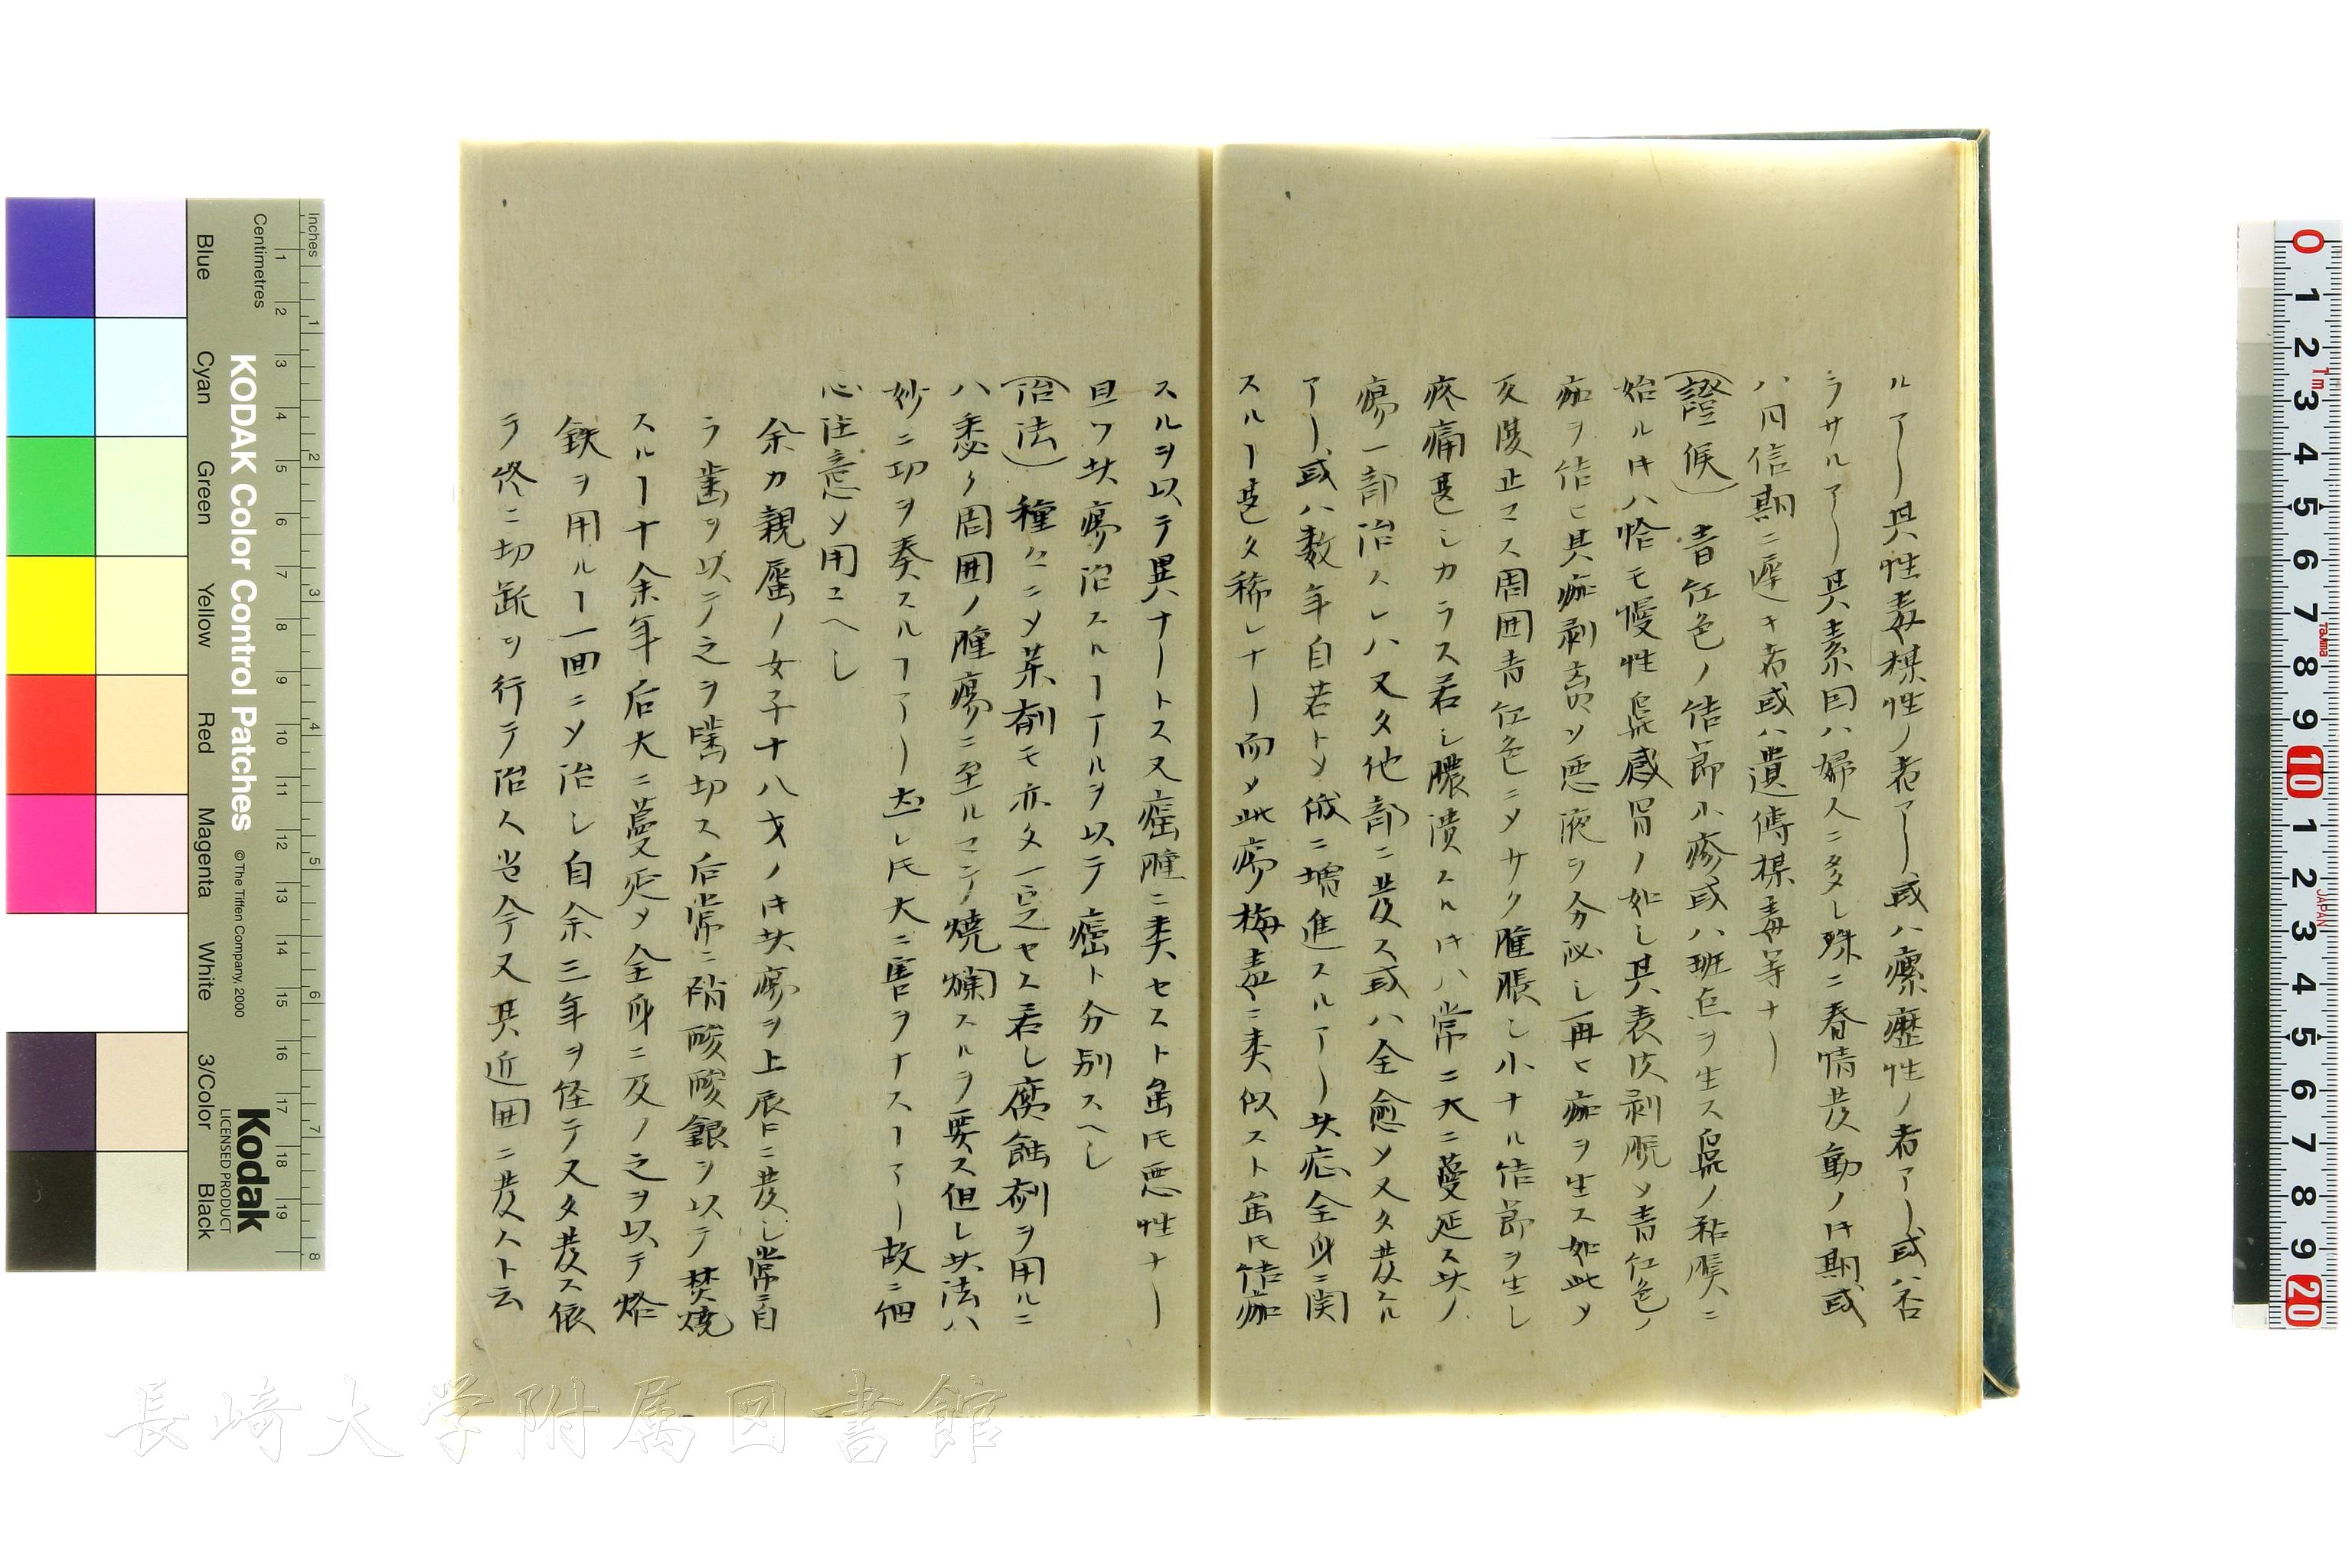 ルアリ其性毒楳性ノ者アリ或ハ瘰癧性ノ者アリ或ハ否
ラサルアリ其素因ハ婦人ニ多タシ殊ニ春情発動ノ時期或
ハ月信期ニ遅キ者或ハ遺傳楳毒等ナリ
(證候) 青紅色ノ结節小疹或ハ班点ヲ生ス鼻ノ粘膜ニ
始ルキハ恰モ慢性鼻感冒ノ如シ其表皮剥脱メ青紅色ノ
痂ヲ结ヒ其痂剥脱メ悪液ヲ分泌シ再ヒ痂ヲ生ス如此メ
反復止マス周囲青紅色ニメサク腫脹シ小ナル结節ヲ生シ
疼痛甚シカラス若シ膿潰スルキハ常ニ大ニ蔓延ス其ノ
瘍一部治スレハ又タ他部ニ発ス或ハ全愈メ又タ発スル
アリ或ハ数年自若トメ俄ニ増進スルアリ其症全身ニ関
スルヿ甚タ稀レナリ而メ此瘍梅毒ニ类似スト虽𪜈结痂
スルヲ以テ異ナリトス又癌腫ニ类セスト虽𪜈悪性ナリ
且ツ其瘍治スルヿアルヲ以テ癌ト分别スヘシ
(治法) 種々ニメ薬剤モ亦タ一定セス若シ腐蝕剤ヲ用ルニ
ハ悉ク周囲ノ腫瘍ニ至ルマテ焼爛スルヲ要ス但シ其法ハ
妙ニ功ヲ奏スルヿアリ然レ𪜈大ニ害ヲナスヿアリ故ニ細
心注意メ用ユヘシ
余カ親屬ノ女子十八才ノキ其瘍ヲ上唇ニ発シ常ニ自
ラ歯ヲ以テ之ヲ噛切ス后常ニ硝酸酸銀ヲ以テ焚焼
スルヿ十余年后大ニ蔓延メ全身ニ及ノ之ヲ以テ烙
鉄ヲ用ルヿ一回ニメ治シ自余三年ヲ怪テ又タ発ス依
テ終ニ切断ヲ行テ治ス当今又其近囲ニ発スト云
Inches
Centimetres
KODAK Color Control Patches
© The Tiffen Company, 2000
Kodak
LICENSED PRODUCT
Blue
Cyan
Green
Yellow
Red
Magenta
White
3/Color
Black
1m
Tajima
JAPAN
長崎大学附属図書館